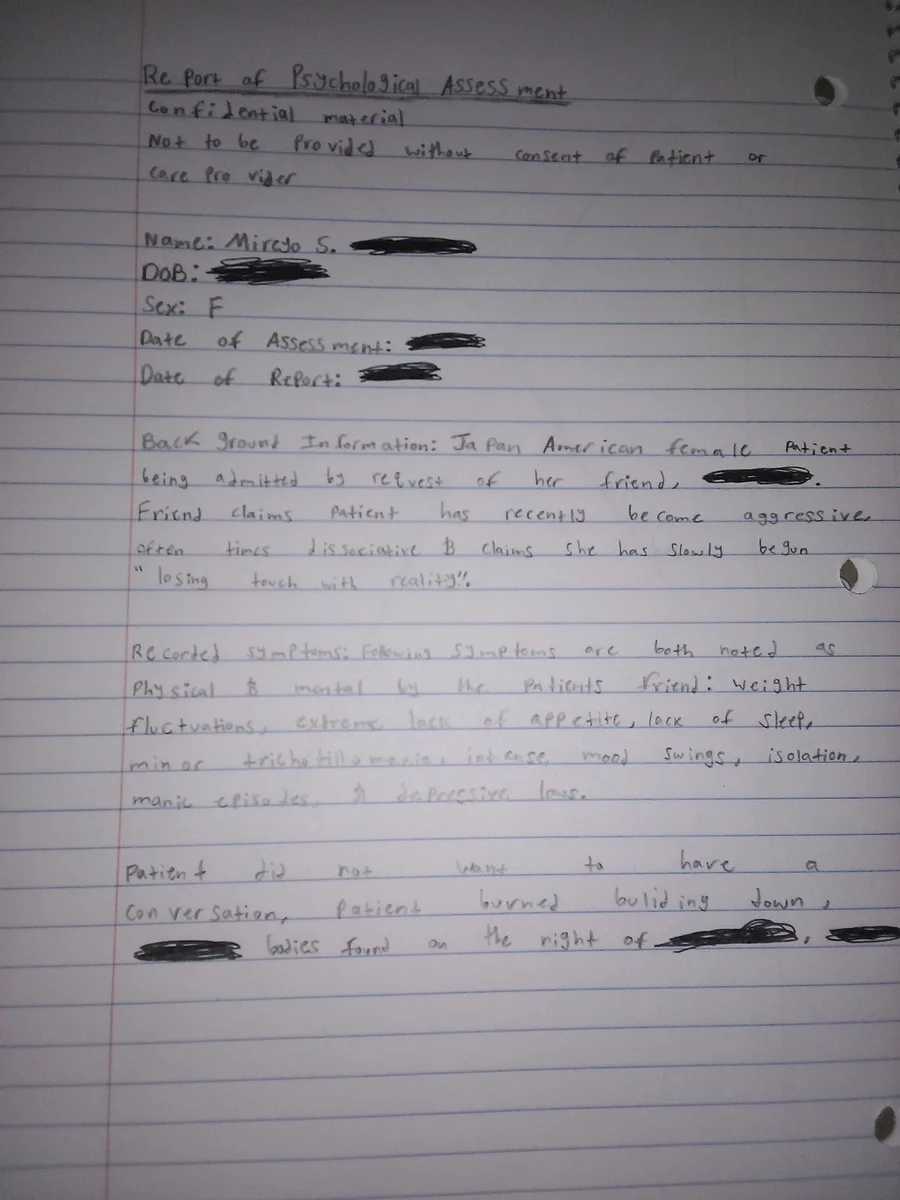 Report of Psychological Assessment
Confidential material
Not to be Provided without consent of Patient or
Care Provider
Name: Mireyo S.
DoB:
Sex: F
Date of Assessment:
Date of Report:
Background Information: Japan American female Patient
being admitted by request of her friend,
Friend claims Patient has recently become aggressive,
often times dissociative & claims she has slowly begun
"losing touch with reality".
Recorded symptoms: Following symptoms are both noted as
Physical & mental by the Patients friend: weight
fluctuations, extreme lack of appetite, lack of sleep,
minor trichotillomania, intense mood swings, isolation,
manic episodes, & depressive lows.
Patient did not want to have a
conversation, Patient burned buliding down,
bodies found on the night of